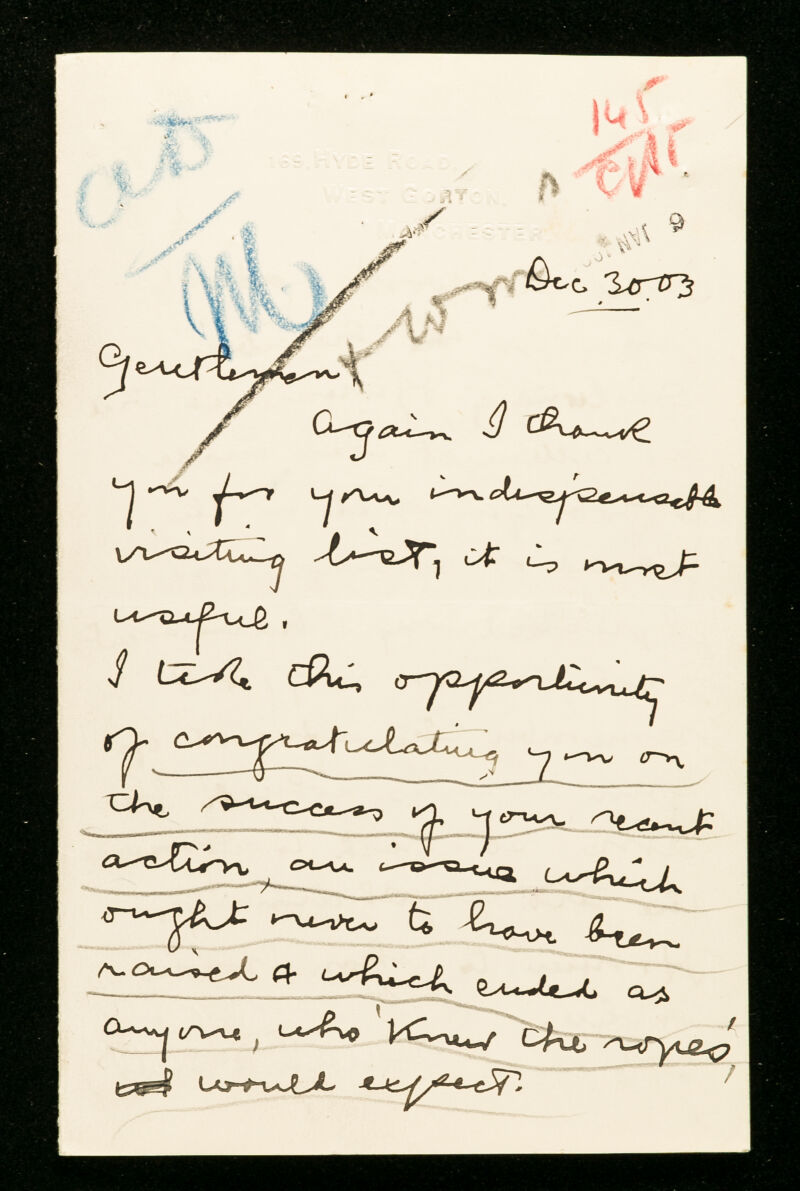 169, HYDE ROAD,
WEST GORTON,
MANCHESTER.
145
9 JAN
Dec. 30. 03
Gentlemen,
Again I thank
you for your indispensable
visiting list, it is most
useful.
I take this opportunity
of congratulating you on
the success of your recent
action, an issue which
ought never to have been
raised & which ended as
anyone, who 'knew the ropes',
would expect.